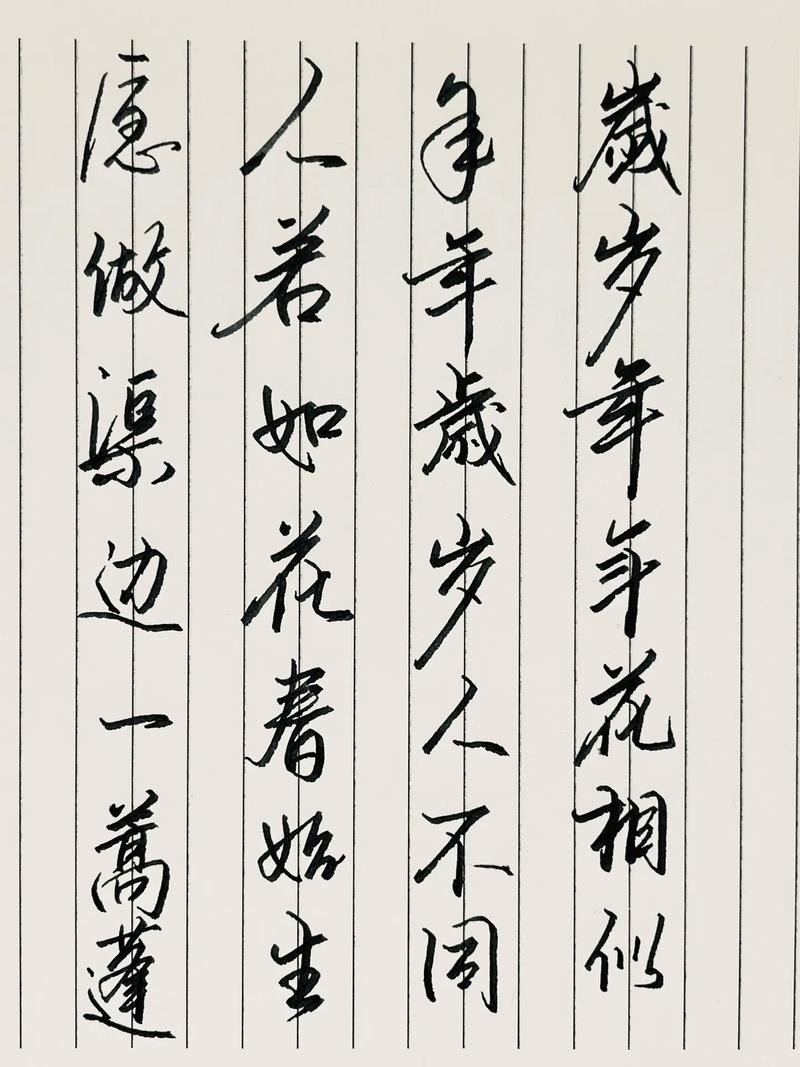 歲岁年年花相似
年年歲岁人不同
人若如花春始生
愿做渠边一蒿蓬